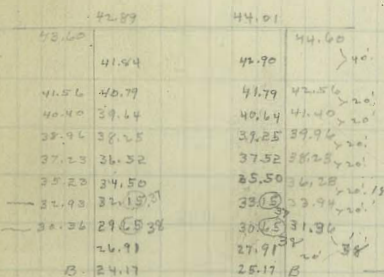 42.89 44.01
43.60 44.60
41.84 42.90 40'
41.56 40.79 41.79 42.56 20'
40.40 39.64 40.64 41.40 20'
38.96 38.25 39.25 39.96 20'
37.23 36.52 37.52 38.23 20'
35.23 34.50 35.50 36.28
32.93 32.15 33.15 33.94 20'
30.36 29.65 38 30.65 31.36
26.91 27.91 38 20' 38
B 24.17 25.17 B